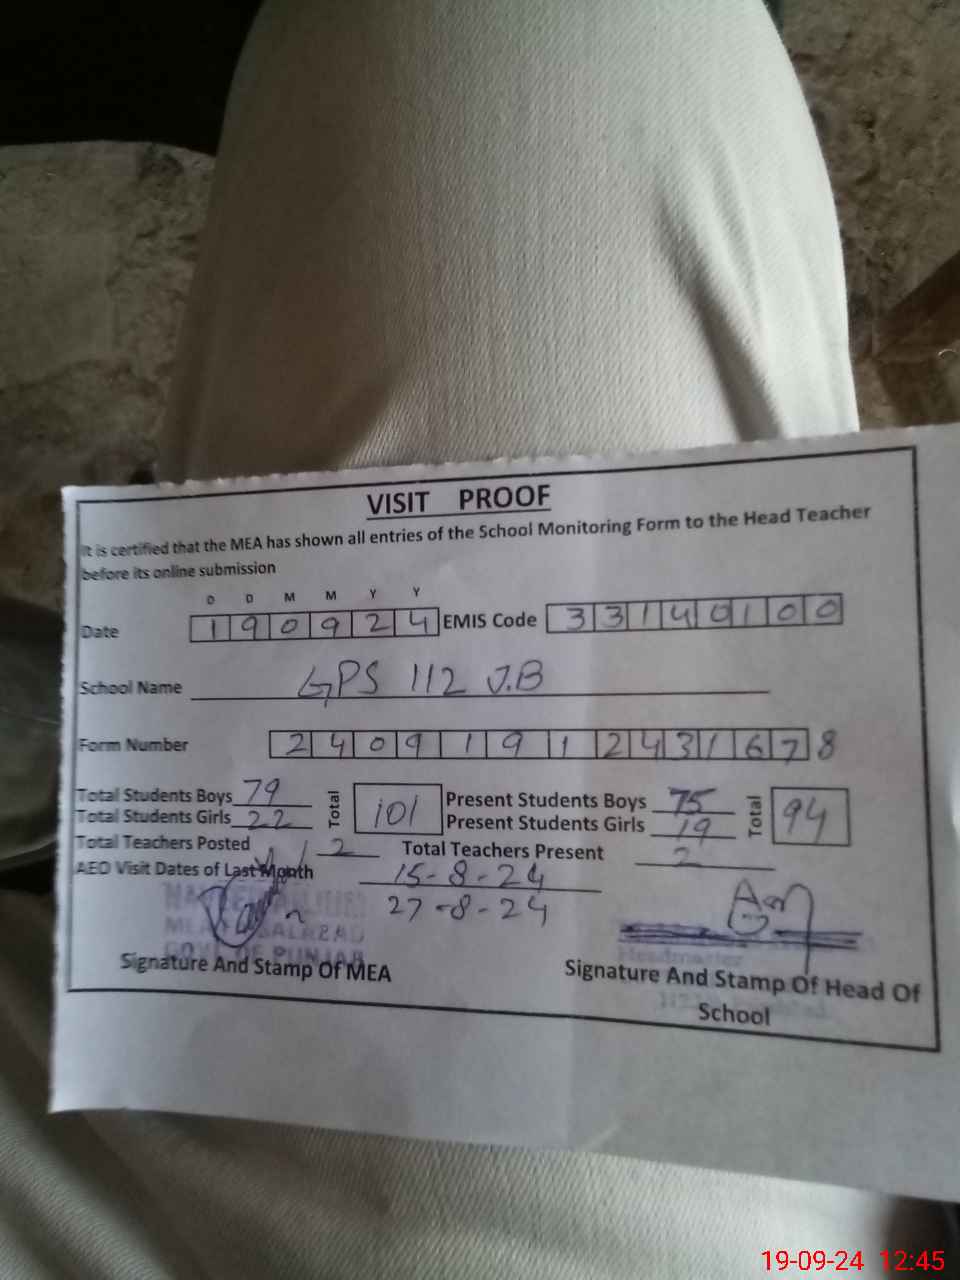 VISIT PROOF
It is certified that the MEA has shown all entries of the School Monitoring Form to the Head Teacher
before its online submission
D D M M Y Y
Date 190924 EMIS Code 33140100
School Name GPS 112 J.B
Form Number 24091912431678
Total Students Boys 79 Total 101 Present Students Boys 75 Total 94
Total Students Girls 22 Present Students Girls 19
Total Teachers Posted 2 Total Teachers Present 2
AEO Visit Dates of Last Month 15-8-24
27-8-24
GOVT OF PUNJAB
Headmaster
Signature And Stamp Of MEA Signature And Stamp Of Head Of
School
19-09-24 12:45